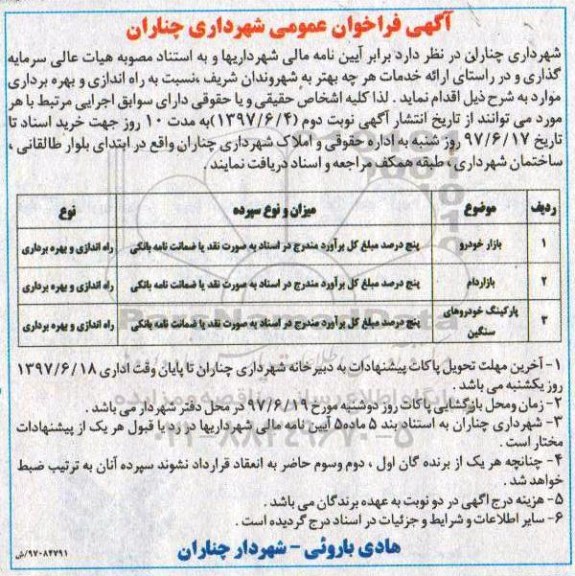 آگهی فراخوان عمومی شهرداری چناران
شهرداری چناران در نظر دارد برابر آیین نامه مالی شهرداریها و به استناد مصوبه هیات عالی سرمایه
گذاری و در راستای ارائه خدمات هر چه بهتر به شهروندان شریف ،نسبت به راه اندازی و بهره برداری
موارد به شرح ذیل اقدام نماید . لذا کلیه اشخاص حقیقی و یا حقوقی دارای سوابق اجرایی مرتبط با هر
مورد می توانند از تاریخ انتشار آگهی نوبت دوم (۱۳۹۷/۶/۴)به مدت ۱۰ روز جهت خرید اسناد تا
تاریخ ۹۷/۶/۱۷ روز شنبه به اداره حقوقی و املاک شهرداری چناران واقع در ابتدای بلوار طالقانی ،
ساختمان شهرداری ، طبقه همکف مراجعه و اسناد دریافت نمایند .
ردیف موضوع میزان و نوع سپرده نوع
۱ بازار خودرو پنج درصد مبلغ کل برآورد مندرج در اسناد به صورت نقد یا ضمانت نامه بانکی راه اندازی و بهره برداری
۲ بازاردام پنج درصد مبلغ کل برآورد مندرج در اسناد به صورت نقد یا ضمانت نامه بانکی راه اندازی و بهره برداری
۳ پارکینگ خودروهای سنگین پنج درصد مبلغ کل برآورد مندرج در اسناد به صورت نقد یا ضمانت نامه بانکی راه اندازی و بهره برداری
ParsNamadData
۱- آخرین مهلت تحویل پاکات پیشنهادات به دبیرخانه شهرداری چناران تا پایان وقت اداری ۱۳۹۷/۶/۱۸
روز یکشنبه می باشد .
۲- زمان ومحل بازگشایی پاکات روز دوشنبه مورخ ۹۷/۶/۱۹ در محل دفتر شهردار می باشد .
۳- شهرداری چناران به استناد بند ۵ ماده۵ آیین نامه مالی شهرداریها در رد یا قبول هر یک از پیشنهادات
مختار است .
۴- چنانچه هر یک از برنده گان اول ، دوم وسوم حاضر به انعقاد قرارداد نشوند سپرده آنان به ترتیب ضبط
خواهد شد .
۵- هزینه درج اگهی در دو نوبت به عهده برندگان می باشد .
۶- سایر اطلاعات و شرایط و جزئیات در اسناد درج گردیده است .
هادی باروئی - شهردار چناران
۹۷۰۸۴۷۹۱/ش
۰۲۱-۸۸۳۴۹۶۷۰-۵